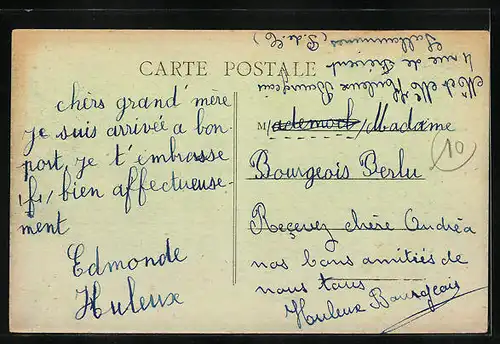 CARTE POSTALE
chèrs grand' mère
Je suis arrivée a bon-
port, je t'embrasse
bien affectueuse-
ment
Edmonde
Huleux
M
Madame
Bourgeois Berlu
10
Reçevez chère Andréa
nos bons amitiés de
nous tous
Houleux Bourgeois
Mr et Mme Houleux Bourgeois
4 rue de
(P. de C)